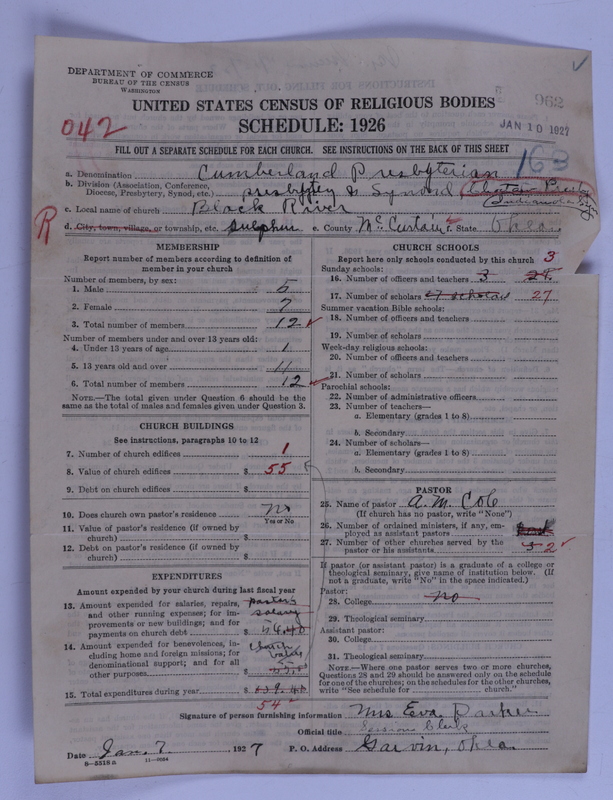 DEPARTMENT OF COMMERCE
BUREAU OF THE CENSUS
WASHINGTON
UNITED STATES CENSUS OF RELIGIOUS BODIES
SCHEDULE: 1926
962
JAN 10 1927
042
163
FILL OUT A SEPARATE SCHEDULE FOR EACH CHURCH. SEE INSTRUCTIONS ON THE BACK OF THIS SHEET
a. Denomination Cumberland Presbyterian
b. Division (Association, Conference, Diocese, Presbytery, Synod, etc.) presbytey & Synord
c. Local name of church Black River
R
d. City, town, village, or township, etc. Sulphur e. County McCurtain f. State Okla.
MEMBERSHIP
Report number of members according to definition of member in your church
Number of members, by sex:
1. Male 5
2. Female 7
3. Total number of members 12
Number of members under and over 13 years old:
4. Under 13 years of age 1
5. 13 years old and over 11
6. Total number of members 12
NOTE.—The total given under Question 6 should be the same as the total of males and females given under Question 3.
CHURCH BUILDINGS
See instructions, paragraphs 10 to 12
7. Number of church edifices 1
8. Value of church edifices $ 55
9. Debt on church edifices $
10. Does church own pastor's residence no
Yes or No
11. Value of pastor's residence (if owned by church) $
12. Debt on pastor's residence (if owned by church) $
EXPENDITURES
Amount expended by your church during last fiscal year
13. Amount expended for salaries, repairs, and other running expenses; for improvements or new buildings; and for payments on church debt $ 54.40
pastor's salary
14. Amount expended for benevolences, including home and foreign missions; for denominational support; and for all other purposes $
church
15. Total expenditures during year $
54
CHURCH SCHOOLS
Report here only schools conducted by this church
3
Sunday schools:
16. Number of officers and teachers 3
17. Number of scholars 27 scholars 27
Summer vacation Bible schools:
18. Number of officers and teachers
19. Number of scholars
Week-day religious schools:
20. Number of officers and teachers
21. Number of scholars
Parochial schools:
22. Number of administrative officers
23. Number of teachers—
a. Elementary (grades 1 to 8)
b. Secondary
24. Number of scholars—
a. Elementary (grades 1 to 8)
b. Secondary
PASTOR
25. Name of pastor A. M. Cob
(If church has no pastor, write "None")
26. Number of ordained ministers, if any, employed as assistant pastors
27. Number of other churches served by the pastor or his assistants 3 2
If pastor (or assistant pastor) is a graduate of a college or theological seminary, give name of institution below. (If not a graduate, write "No" in the space indicated.)
Pastor:
28. College no
29. Theological seminary
Assistant pastor:
30. College
31. Theological seminary
NOTE.—Where one pastor serves two or more churches, Questions 28 and 29 should be answered only on the schedule for one of the churches; on the schedules for the other churches, write "See schedule for church."
Signature of person furnishing information Mrs Eva Parker
Official title Sessions Clerk
Date Jan. 7. 1927 P. O. Address Garvin, Okla.
8-5518a 11-9054